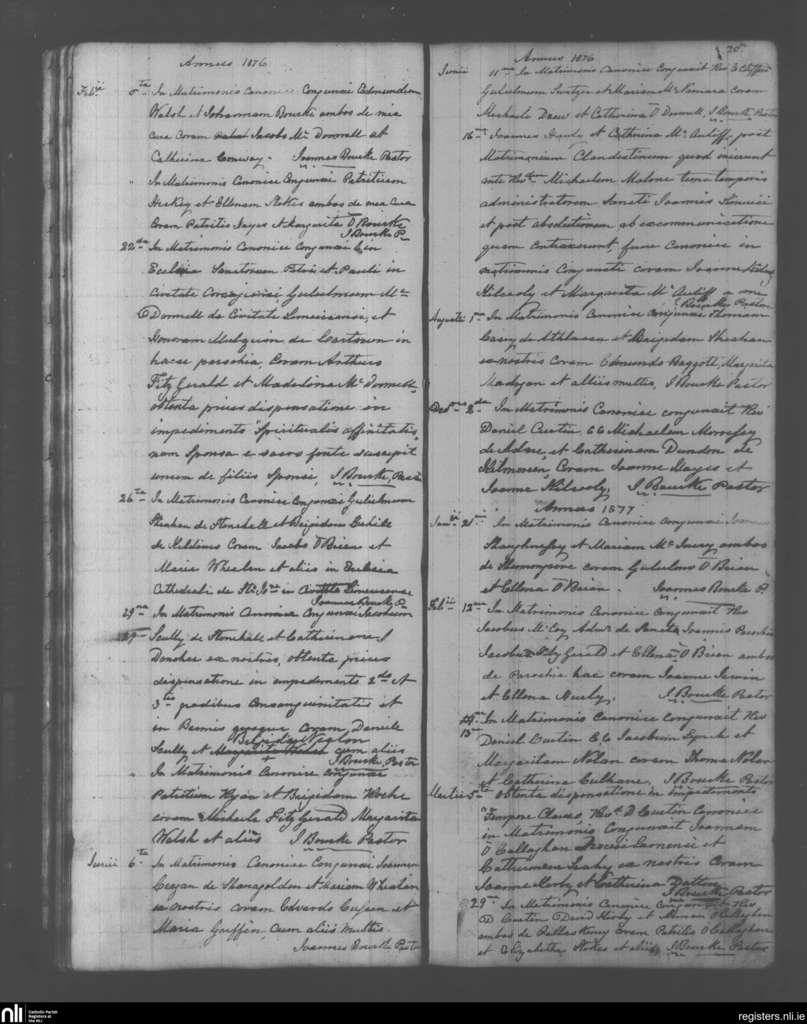 Annus 1876
Feb.ii 8ta In Matrimonio Canonice Conjunxi Edmundum
Walsh et Johannam Bourke ambos de mea
cura Coram Jacobo Mc Donnell et
Catherina Conway. Joannes Bourke Pastor
" In Matrimonio Canonice Conjunxi Patritium
Hickey et Ellenam Stokes ambos de mea Cura
Coram Patritio Hayes et Margarita O'Rourke
J Bourke P.
22da In Matrimonio Canonice Conjunxi in
Eclesia Sanctorum Petri et Pauli in
Civitate Gulielmum Mc
Donnell de Civitate Limericensi, et
Honoram Mulquin de Cartown in
hacce parochia, Coram Arthuro
FitzGerald et Madelina Mc Donnell,
obtenta prius dispensatione in
impedimento Spiritualis affinitatis,
nam Sponsa e sacro fonte suscepit
unum de filiis Sponsi, J. Bourke, Pastor
26ta In Matrimonio Canonice Conjunxi Gulielmum
Sheahan de Stonehall et Brigidam
de Kildimo Coram Jacobo O'Brien et
Maria Whelan et aliis in Eclesia
Cathedrali de Sti Jnis in Civitate Limericense
Joannes Bourke P.
29na In Matrimonio Canonice Conjunxi Jacobum
29na Scully de Stonehall et Catherinam
Donohoe ex nostris, obtenta prius
dispensatione in impedimento 2do et
3tio gradibus Consanguinitatis et
in Bannis quoque coram Daniele
Brigida Neston
Scully et cum aliis
J Bourke, Pastor
" In Matrimonio Canonice conjunxi
Patritium Ryan et Brigidam Roche
coram Michaele FitzGerald Margarita
Walsh et aliis J Bourke Pastor
Junii 6ta In Matrimonio Canonice Conjunxi Joannem
de Shanagolden et Mariam Whelan
ex nostris coram Edvardo et
Maria Griffin, cum aliis multis
Joannes Bourke Pastor
20
Annus 1876
Junii 11mo In Matrimonio Canonice Conjunxit Rev E Clifford
Gulielmum et Mariam McNamara coram
Michaele Drew et Catherina O Donnell, J Bourke, Pastor
16to Joannes et Cathrina Mc Auliff, post
Matrimonium Clandestinum quod inierunt
ante Revdum Michaelem Malone tunc temporis
administratorem Sancti Joannis
et post absolutionem ab excommunicatione
quam contraxerunt, fuere Canonice in
matrimonio Conjuncti coram Joanne
Kilcooly et Margarita Mc Auliff a me
J Bourke Pastor
Augusti 1mo In Matrimonio Canonice conjunxi Thomam
Casey de Athlacca et Brigidam Sheehan
ex nostris Coram Edmundo Baggott, Margarita
Madigan et aliis multis, J Bourke Pastor
Decbris 2da In Matrimonio Canonice conjunxit Rev
Daniel Curtin CC Michaelem Morrissey
de Adare, et Catherinam Dundon de
Kilmoreen Coram Joanne Hayes et
Joanne Kilcooly, J Bourke Pastor
Annus 1877
Januarii 21mo In Matrimonio Canonice conjunxi Joannem
Shaughnessy et Mariam Mc Inery ambos
de coram Gulielmo O Brien
et Ellena O'Brien. Joannes Bourke P.
Feb.ii 12ma In Matrimonio Canonice Conjunxit Rev
Jacobus Mc Coy Admr. de Sancti Joannis Parochia
Jacobum FitzGerald et Ellenam O'Brien ambos
de Parochia hac coram Joanne
et Ellena Hurley, J. Bourke Pastor
13 In Matrimonio Canonice conjunxit Rev
Daniel Curtin CC Jacobum Lynch et
Margaritam Nolan coram Thoma Nolan
et Catherina Culhane, J Bourke Pastor
Martii 5ta Obtenta dispensatione in impedimento
Tempore Clauso, Revd. D Curtin Canonice
in Matrimonio Conjunxit Joannem
O Callaghan et
Catherinam Leahy ex nostris Coram
Joanne Kirby et Catherina Dalton
J Bourke Pastor
29na In Matrimonio Canonice Conjunxit Rev
D Curtin David Kirby et O'Callaghan
ambos de Pallaskenry coram Patritio O'Callaghan
et Elizabetha Stokes et aliis, J Bourke Pastor
nli
Catholic Parish
Registers at
the NLI
registers.nli.ie